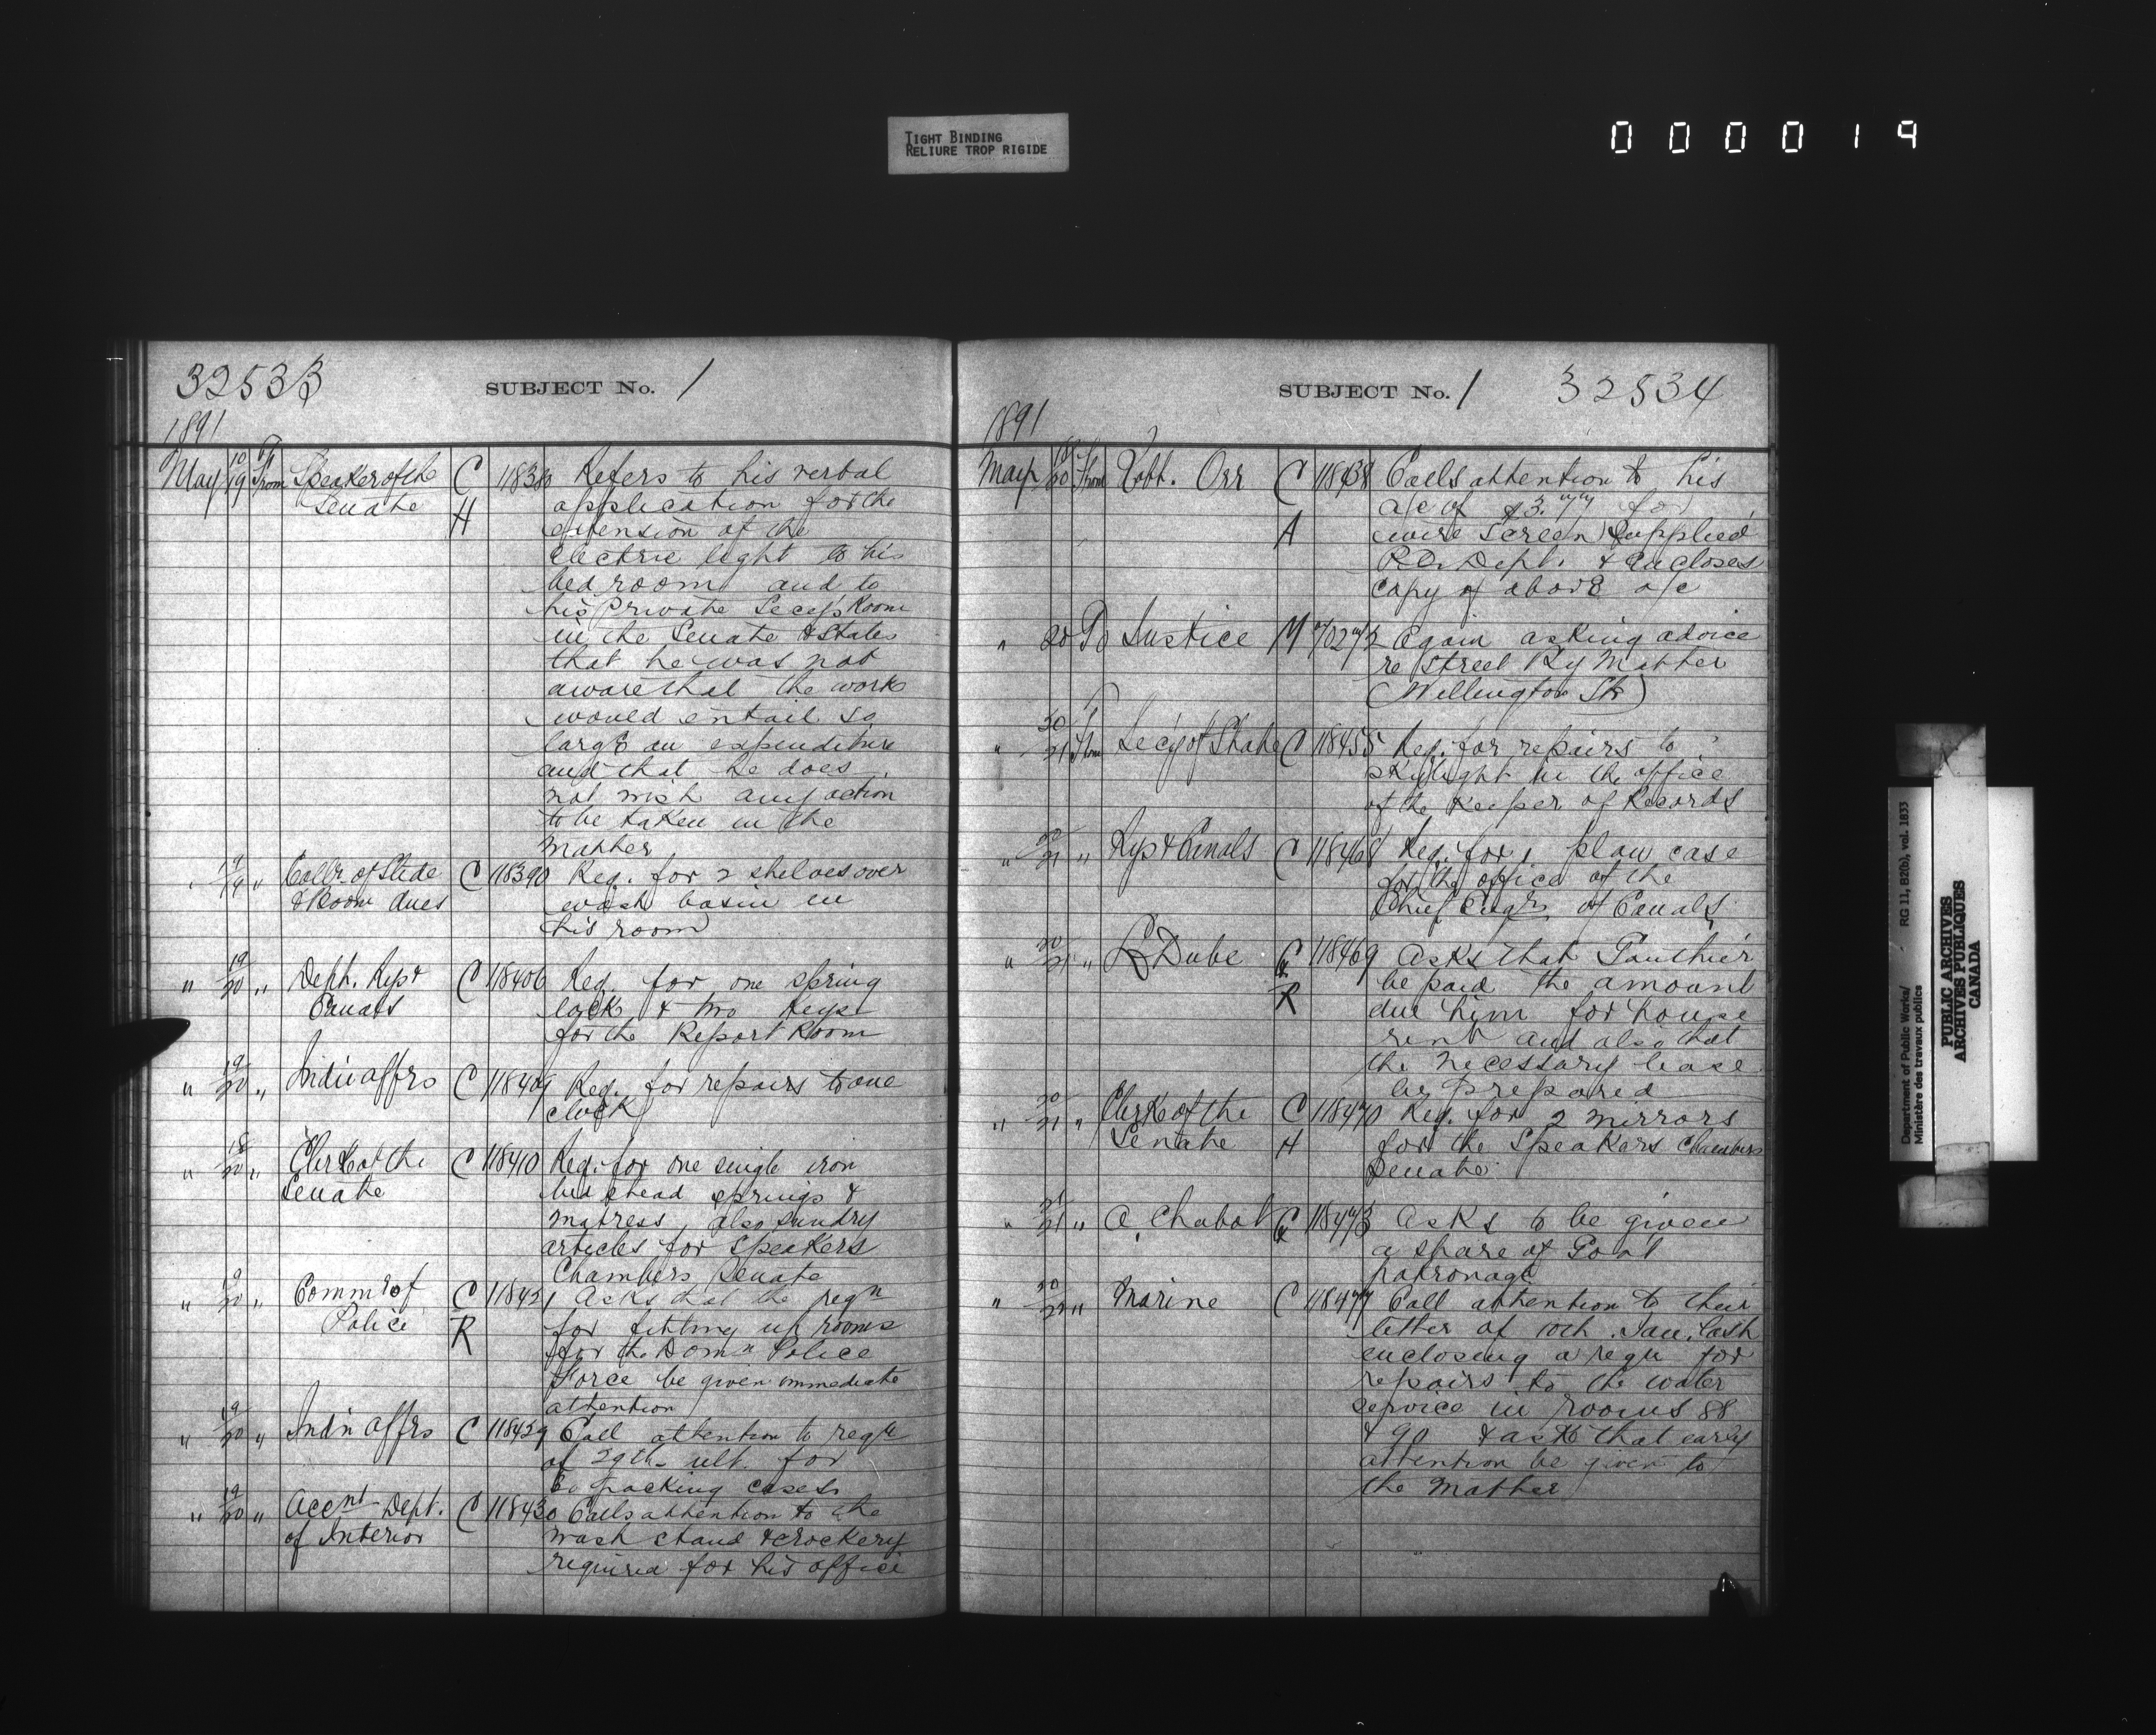 TIGHT BINDING
RELIURE TROP RIGIDE
000019
32533
SUBJECT No. 1
1891
May 10/19 From Speaker of the C 11838 Refers to his verbal
Senate H application for the
extension of the
Electric light to his
bed room and to
his Private Secy's Room
in the Senate & States
that he was not
aware that the works
would entail so
large an expenditure
and that he does
not wish any action
to be taken in the
matter
" 19/19 " Collr. of Slide C 118390 Req. for 2 shelves over
& Boom dues wash basin in
his room
" 19/20 " Deph. Rys & C 118406 Req. for one spring
Canals lock & two keys
for the Report Room
" 19/20 " Indn Affrs C 118409 Req. for repairs to one
clock
" 18/20 " Clerk of the C 118410 Req. for one single iron
Senate bed stead springs &
matress, also sundry
articles for Speakers
Chambers Senate
" 19/20 " Commr of C 118421 Asks that the reqn
Police R for fitting up rooms
for the Domn Police
Force be given immediate
attention
" 19/20 " Indn Affrs C 118429 Call attention to reqn
of 29th ult. for
packing cases
" 19/20 " Accnt Dept. C 118430 Calls attention to the
of Interior wash stand & crockery
required for his office
SUBJECT No. 1 32534
1891
May 18/20 From Robt. Orr C 118438 Calls attention to his
A a/c of $3.77 for
wire Screen Supplied
P.O. Dept. & encloses
copy of above a/c
" 20 To Justice M Again asking advice
re Street Ry Matter
(Wellington St)
" 20/21 From Secy of State C 118455 Req. for repairs to
skylight in the office
of the Keeper of Records
" 20/21 " Rys & Canals C 118468 Req. for 1 plan case
for the office of the
Chief Engr of Canals
" 20/21 " L Dube C 118469 Asks that Gauthier
R be paid the amount
due him for house
rent and also that
the necessary lease
be prepared
" 20/21 " Clerk of the C 118470 Req. for 2 mirrors
Senate H for the Speakers Chambers
Senate
" 21/21 " A. Chabot C 118473 Asks to be given
a share of Govt
patronage
" 20/22 " Marine C 118477 Call attention to their
letter of 10th Jan. last
enclosing a reqn for
repairs to the water
service in rooms 88
& 90 & ask that early
attention be given to
the matter
Department of Public Works/ RG 11, B2(b), vol. 1833
Ministère des travaux publics
PUBLIC ARCHIVES
ARCHIVES PUBLIQUES
CANADA